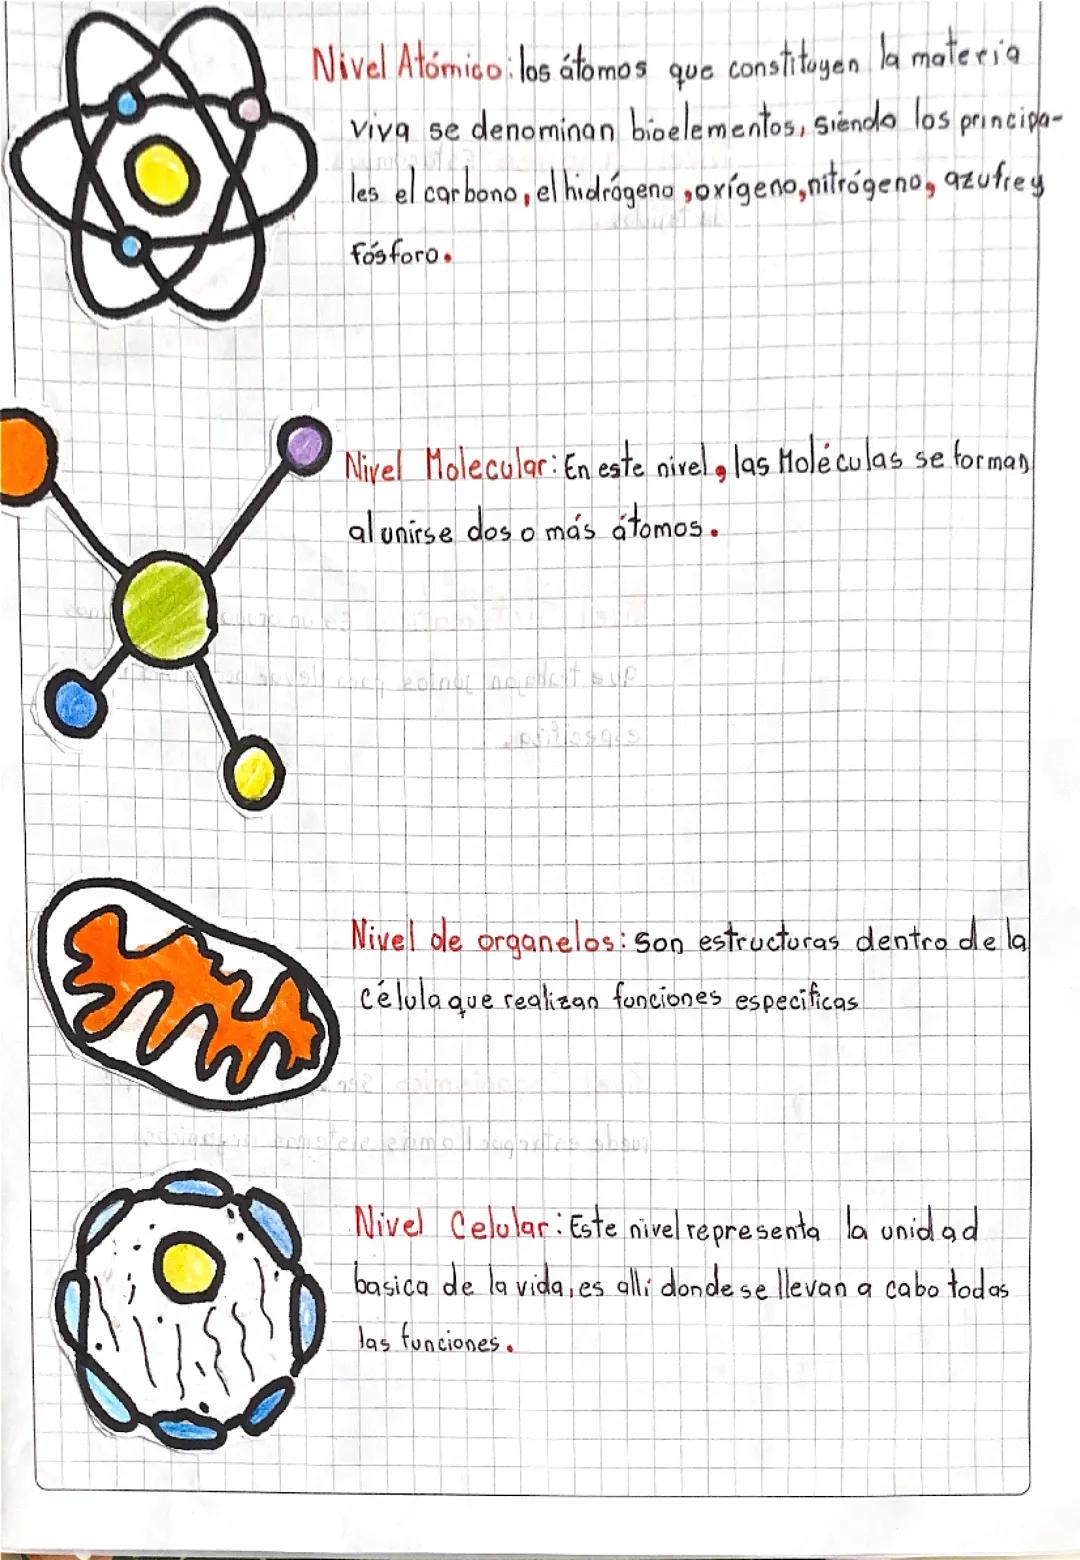 Nivel Atómico: los átomos que constituyen la materia
viva se denominan bioelementos, siendo los principa-
les el carbono, el hidrógeno, oxígeno, nitrógeno, azufre y
fósforo.
Nivel Molecular: En este nivel, las Moléculas se forman
al unirse dos o más átomos.
Nivel de organelos: Son estructuras dentro de la
célula que realizan funciones especificas
Nivel Celular: Este nivel representa la unidad
basica de la vida, es alli donde se llevan a cabo todas
las funciones.